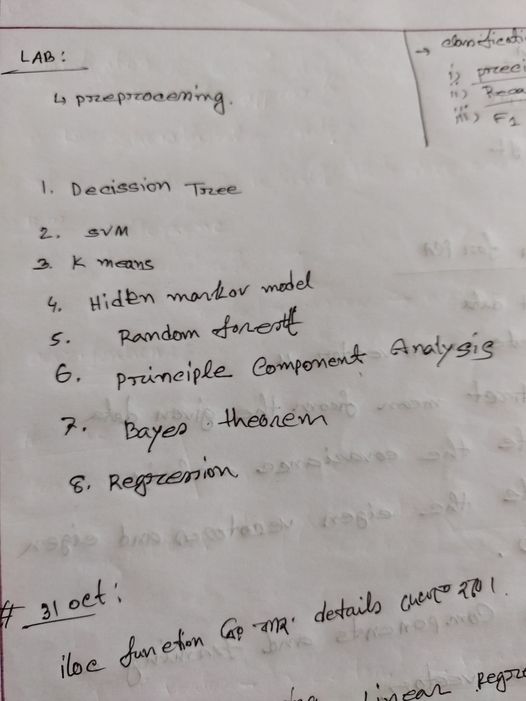 LAB:
↳ preprocessing.
→ classificati
i) preci
ii) Reca
iii) F1
1. Decission Tree
2. SVM
3. K means
4. Hidden markov model
5. Random forest
6. principle Component Analysis
7. Bayes theorem
8. Regression
# 31 oct:
iloc function এর details দেখতে হবে।
Linear Regre